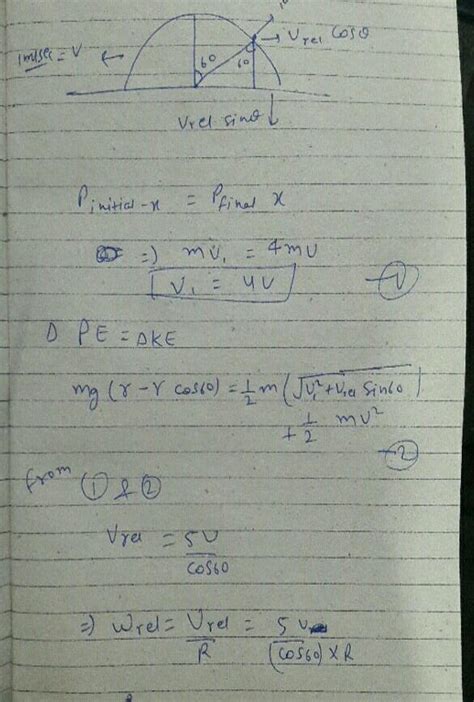 1m/sec = V
60
60
Vrel Cosθ
Vrel sinθ
Pinitial-x = Pfinal x
=) mV1 = 4mU
V1 = 4U —①
D PE = ΔKE
mg (r - r cos60) = 1/2 m (√V1² + Vrel Sin60)
+ 1/2 mU² —②
from ① & ②
Vrel = 5U/cos60
=) Wrel = Vrel/R = 5U/(cos60)×R